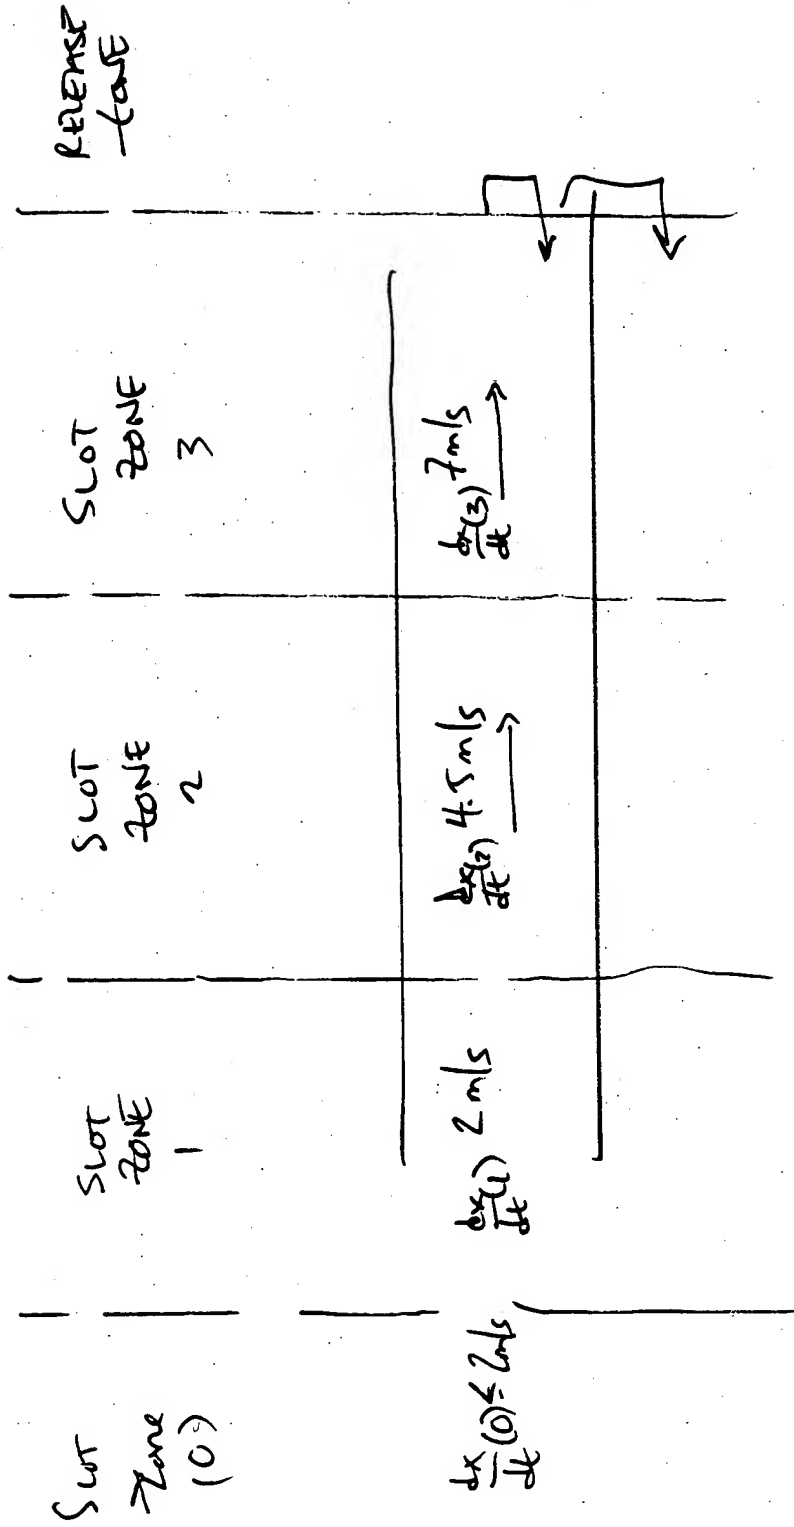 SLOT
Zone
(0)
SLOT
ZONE
1
SLOT
ZONE
2
SLOT
ZONE
3
RELEASE
ZONE
dx/dt (0) ≤ 2m/s
dx/dt (1) 2 m/s
dx/dt (2) 4.5 m/s
dx/dt (3) 7 m/s